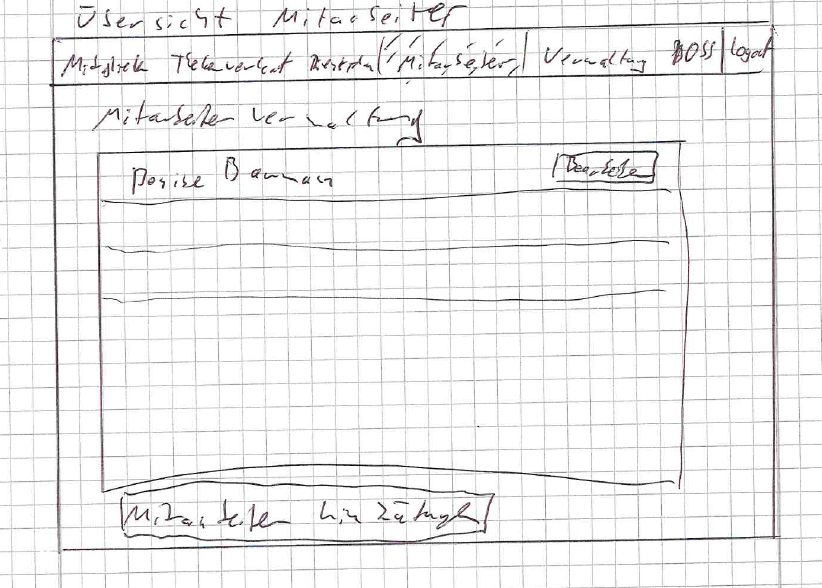 Übersicht Mitarbeiter
Mitglieder Ticketverkauf Dienstplan Mitarbeiter Verwaltung BOSS Logout
Mitarbeiterverwaltung
Denise Baumann Bearbeiten
Mitarbeiter hinzufügen